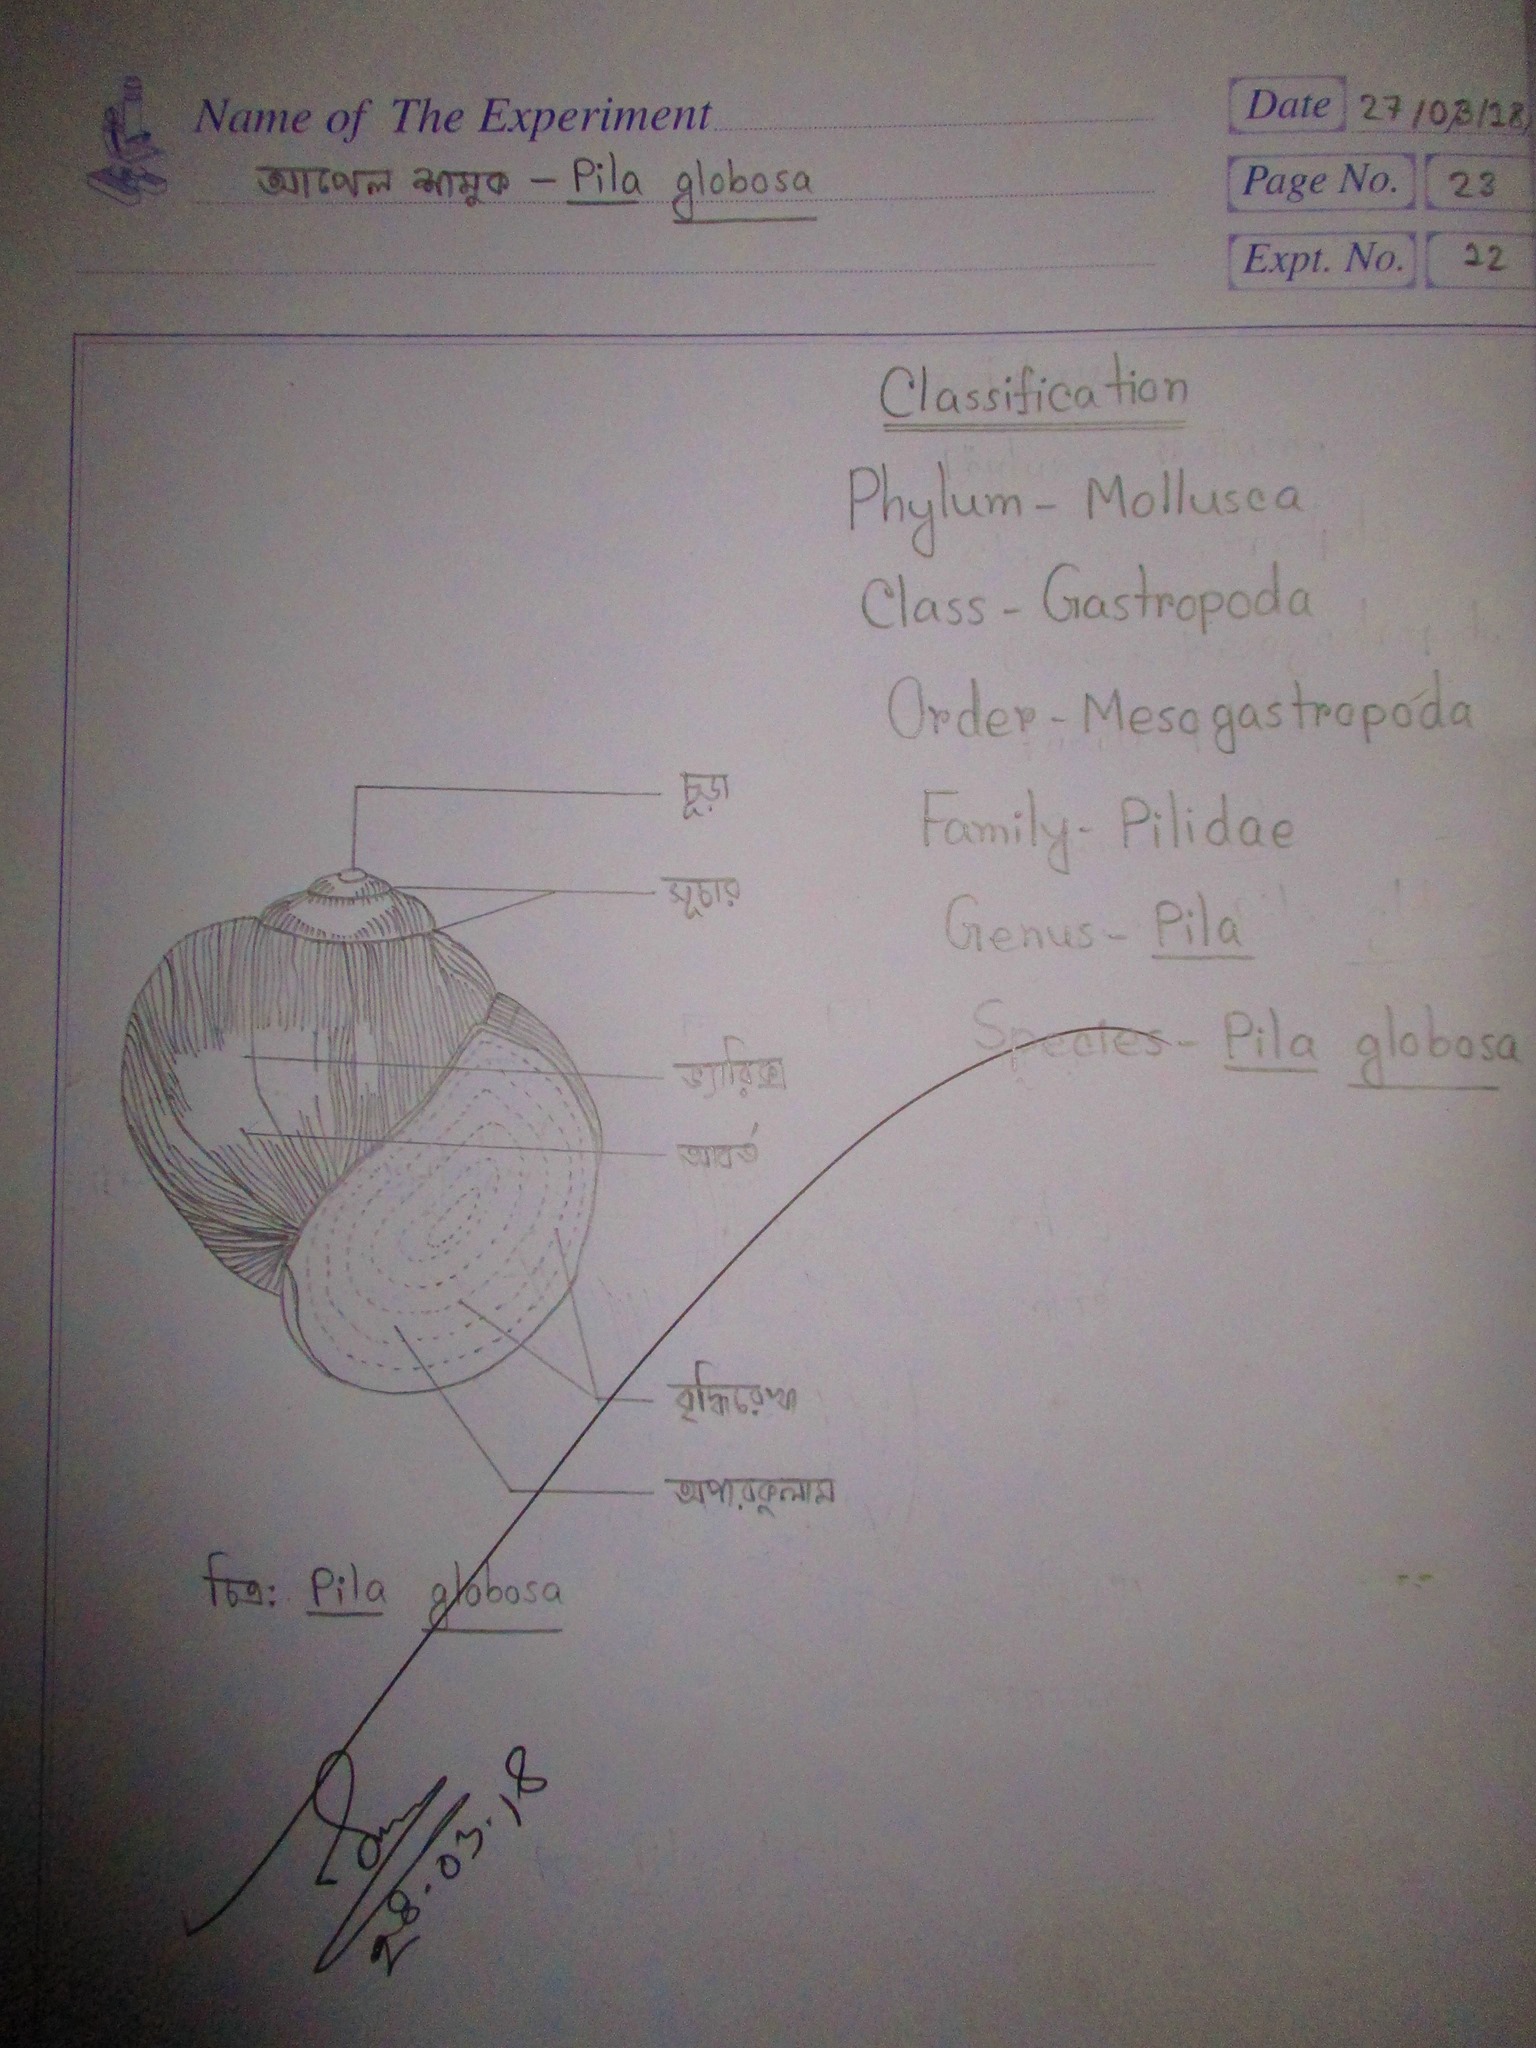 Name of The Experiment
আপেল শামুক – Pila globosa
Date 27/03/18
Page No. 23
Expt. No. 22
Classification
Phylum - Mollusca
Class - Gastropoda
Order - Mesogastropoda
Family - Pilidae
Genus - Pila
Species - Pila globosa
চূড়া
সূচার
ভ্যারিক্স
আবর্ত
বৃদ্ধিরেখা
অপারকুলাম
চিত্র: Pila globosa
28.03.18